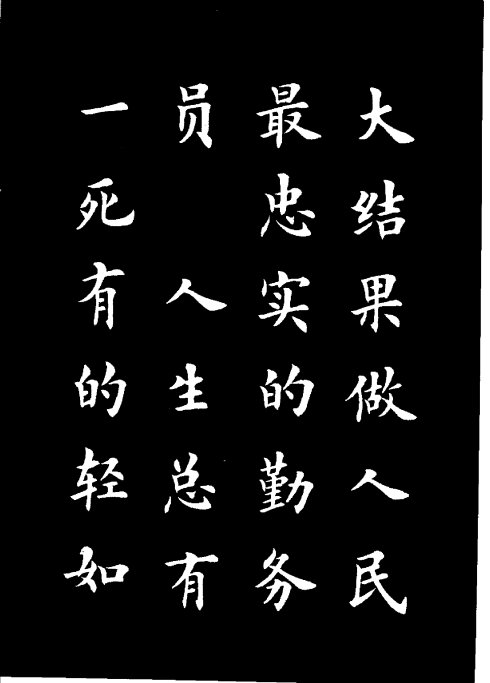 大结果做人民
最忠实的勤务
员 人生总有
一死有的轻如